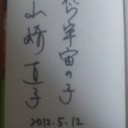 宇宙の子
山崎直子
2012.5.12